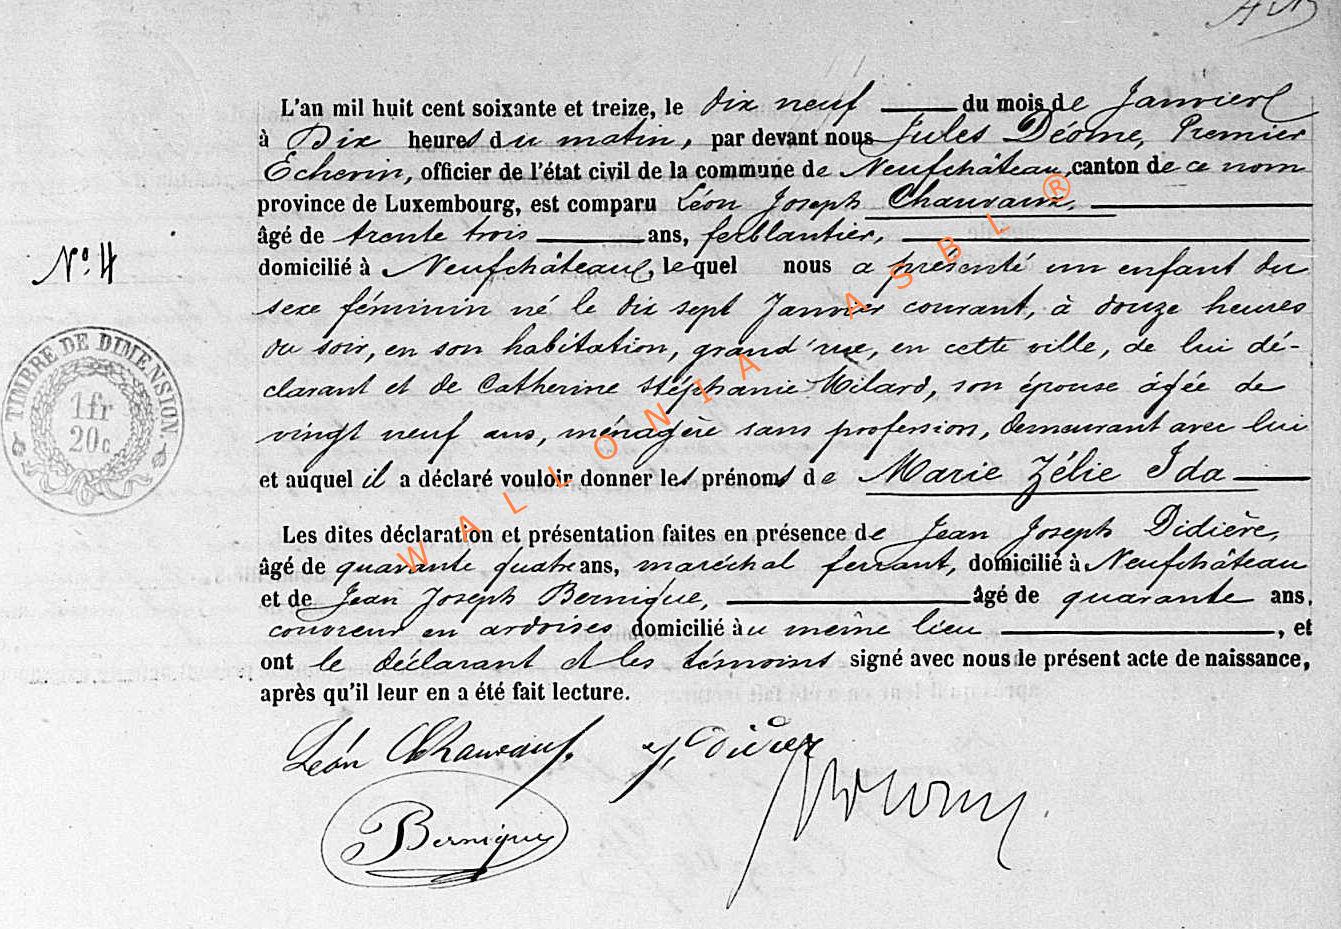 L'an mil huit cent soixante et treize, le dix neuf du mois de Janvier
à Dix heures du matin, par devant nous Jules Déome, Premier
Echevin, officier de l'état civil de la commune de Neufchâteau, canton de ce nom
province de Luxembourg, est comparu Léon Joseph Chauvaux,
âgé de trente trois ans, ferblantier,
N° 4
domicilié à Neufchâteau, lequel nous a présenté un enfant du
sexe féminin né le dix sept Janvier courant, à douze heures
du soir, en son habitation, grand'rue, en cette ville, de lui dé-
clarant et de Catherine Stéphanie Milard, son épouse âgée de
vingt neuf ans, ménagère sans profession, demeurant avec lui
et auquel il a déclaré vouloir donner les prénoms de Marie Zélie Ida
TIMBRE DE DIMENSION.
1 fr
20 c
Les dites déclaration et présentation faites en présence de Jean Joseph Didière,
âgé de quarante quatre ans, maréchal ferrant, domicilié à Neufchâteau
et de Jean Joseph Bernique, âgé de quarante ans,
couvreur en ardoises domicilié au même lieu, et
ont le déclarant et les témoins signé avec nous le présent acte de naissance,
après qu'il leur en a été fait lecture.
Léon Chauvaux. J. Didier
Bernique
WALLONIA ASBL ®